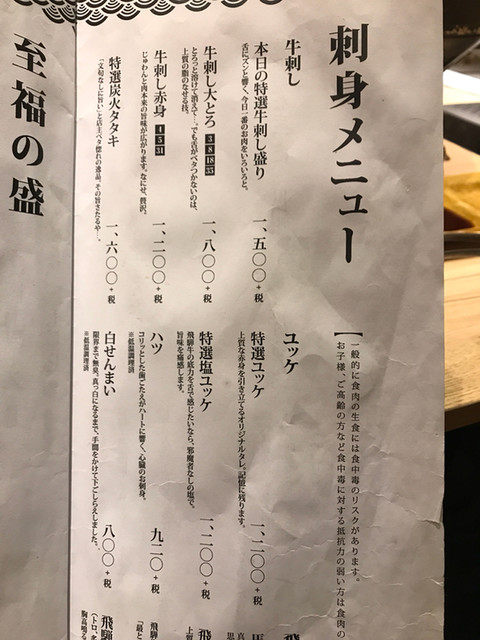 刺身メニュー
【一般的に食肉の生食には食中毒のリスクがあります。
お子様、ご高齢の方など食中毒に対する抵抗力の弱い方は食肉の
牛刺し
本日の特選牛刺し盛り
一、五〇〇+税
舌にズンと響く、今日一番のお肉をいろいろと。
牛刺し大とろ 3 8 18 35
一、八〇〇+税
とろっと溶けて消えて…。でも舌がベタつかないのは、
上質の脂のなせる技。
牛刺し赤身 4 5 31
一、二〇〇+税
じゅわんと肉本来の旨味が広がります。なにせ、贅沢。
特選炭火タタキ
一、六〇〇+税
「文句なしに旨い」と店主ベタ惚れの逸品。その旨さたるや…。
ユッケ
特選ユッケ
一、二〇〇+税
上質な赤身を引き立てるオリジナルタレ。記憶に残ります。
特選塩ユッケ
一、二〇〇+税
飛騨牛の底力を舌で感じたいなら、邪魔者なしの塩で。
旨味を痛感します。
ハツ
九二〇+税
コリっとした歯ごたえがハートに響く、心臓のお刺身。
※低温調理済
白せんまい
八〇〇+税
限界まで無臭。真っ白になるまで、手間をかけて下ごしらえしました。
※低温調理済
至福の盛